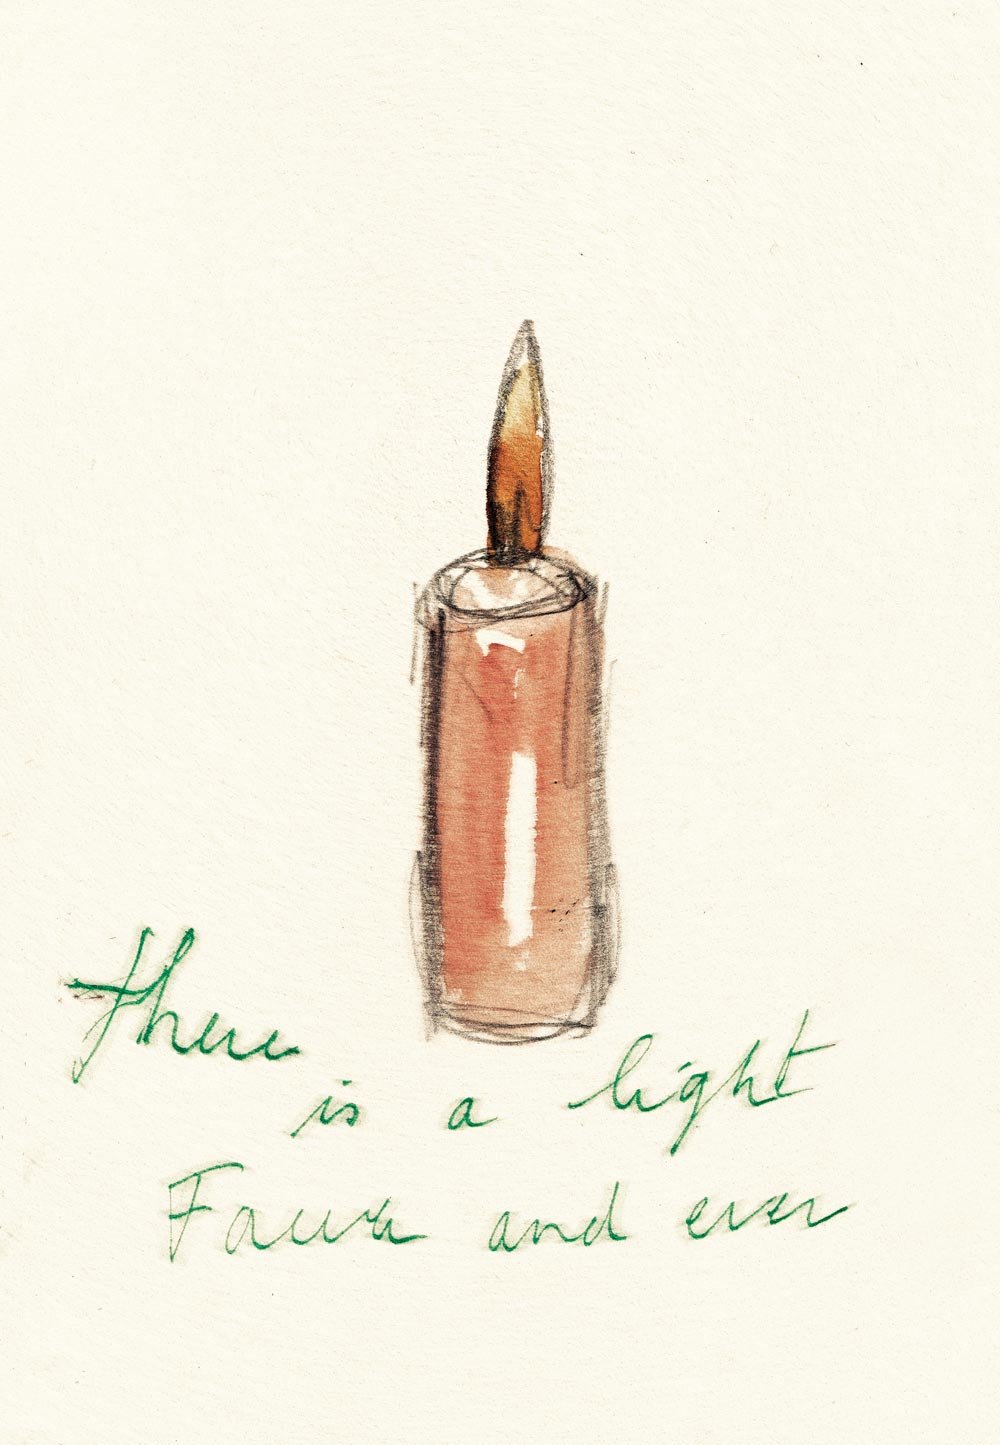 there
is a light
and ever